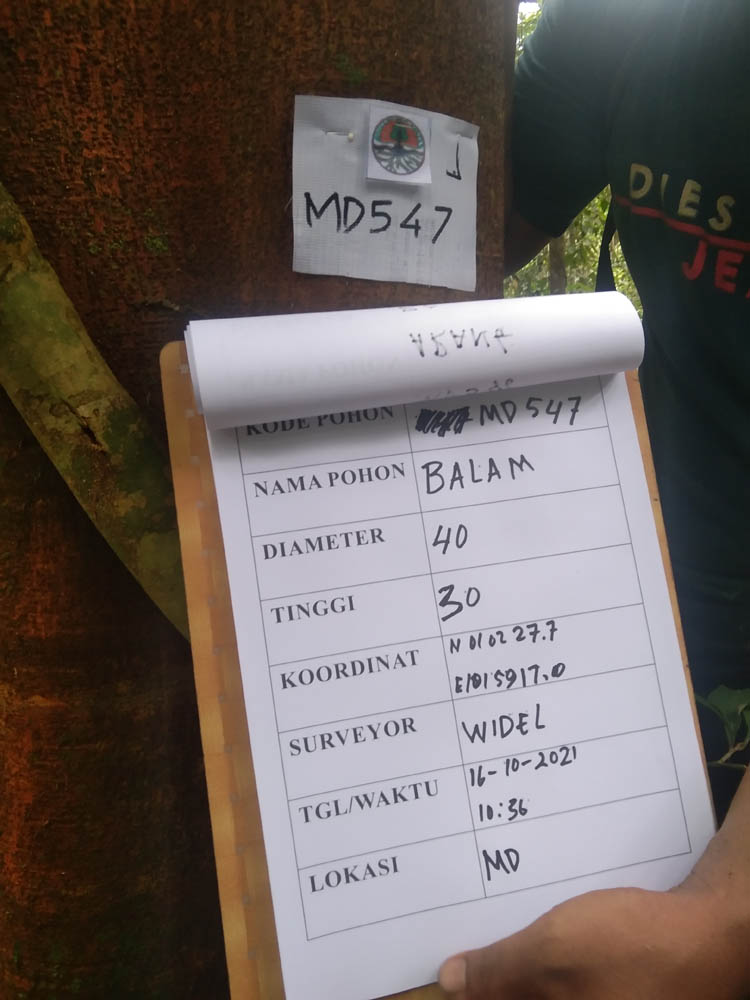 MD547
DIES
JEA
KODE POHON MD 547
NAMA POHON BALAM
DIAMETER 40
TINGGI 30
KOORDINAT N 01 02 27.7
E101 59 17.0
SURVEYOR WIDEL
TGL/WAKTU 16-10-2021
10:36
LOKASI MD